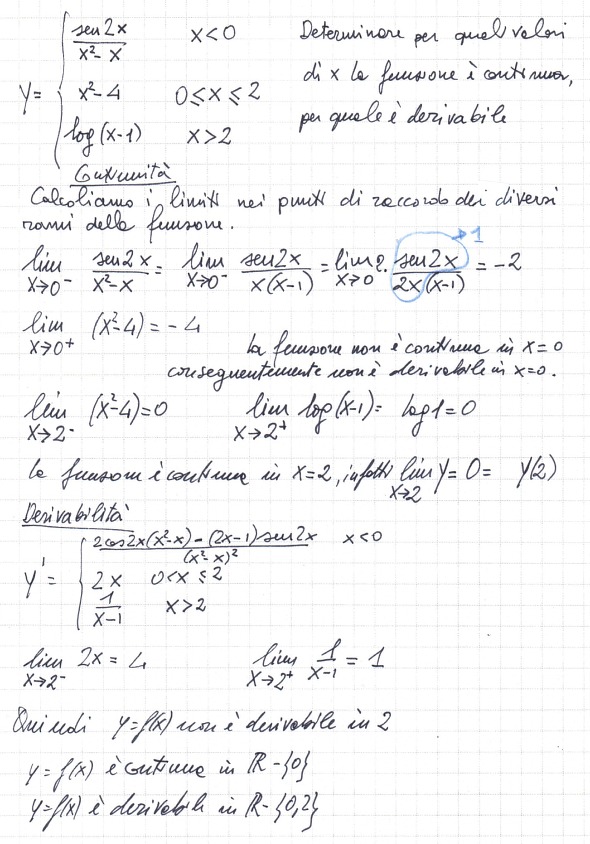 y = { sen2x / x²-x    x<0
x²-4    0≤x≤2
log(x-1)    x>2
Determinare per quali valori
di x la funzione è continua,
per quale è derivabile
Continuità
Calcoliamo i limiti nei punti di raccordo dei diversi
rami della funzione.
lim x→0⁻ sen2x / x²-x = lim x→0⁻ sen2x / x(x-1) = lim x→0 2. sen2x / 2x(x-1) = -2
→1
lim x→0⁺ (x²-4) = -4
la funzione non è continua in x=0
conseguentemente non è derivabile in x=0.
lim x→2⁻ (x²-4)=0    lim x→2⁺ log(x-1)= log1=0
la funzione è continua in x=2, infatti lim x→2 y=0= y(2)
Derivabilità
y' = { 2cos2x(x²-x)-(2x-1)sen2x / (x²-x)²    x<0
2x    0<x≤2
1 / x-1    x>2
lim x→2⁻ 2x = 4    lim x→2⁺ 1 / x-1 = 1
Quindi y=f(x) non è derivabile in 2
y=f(x) è continua in ℝ-{0}
y=f(x) è derivabile in ℝ-{0,2}